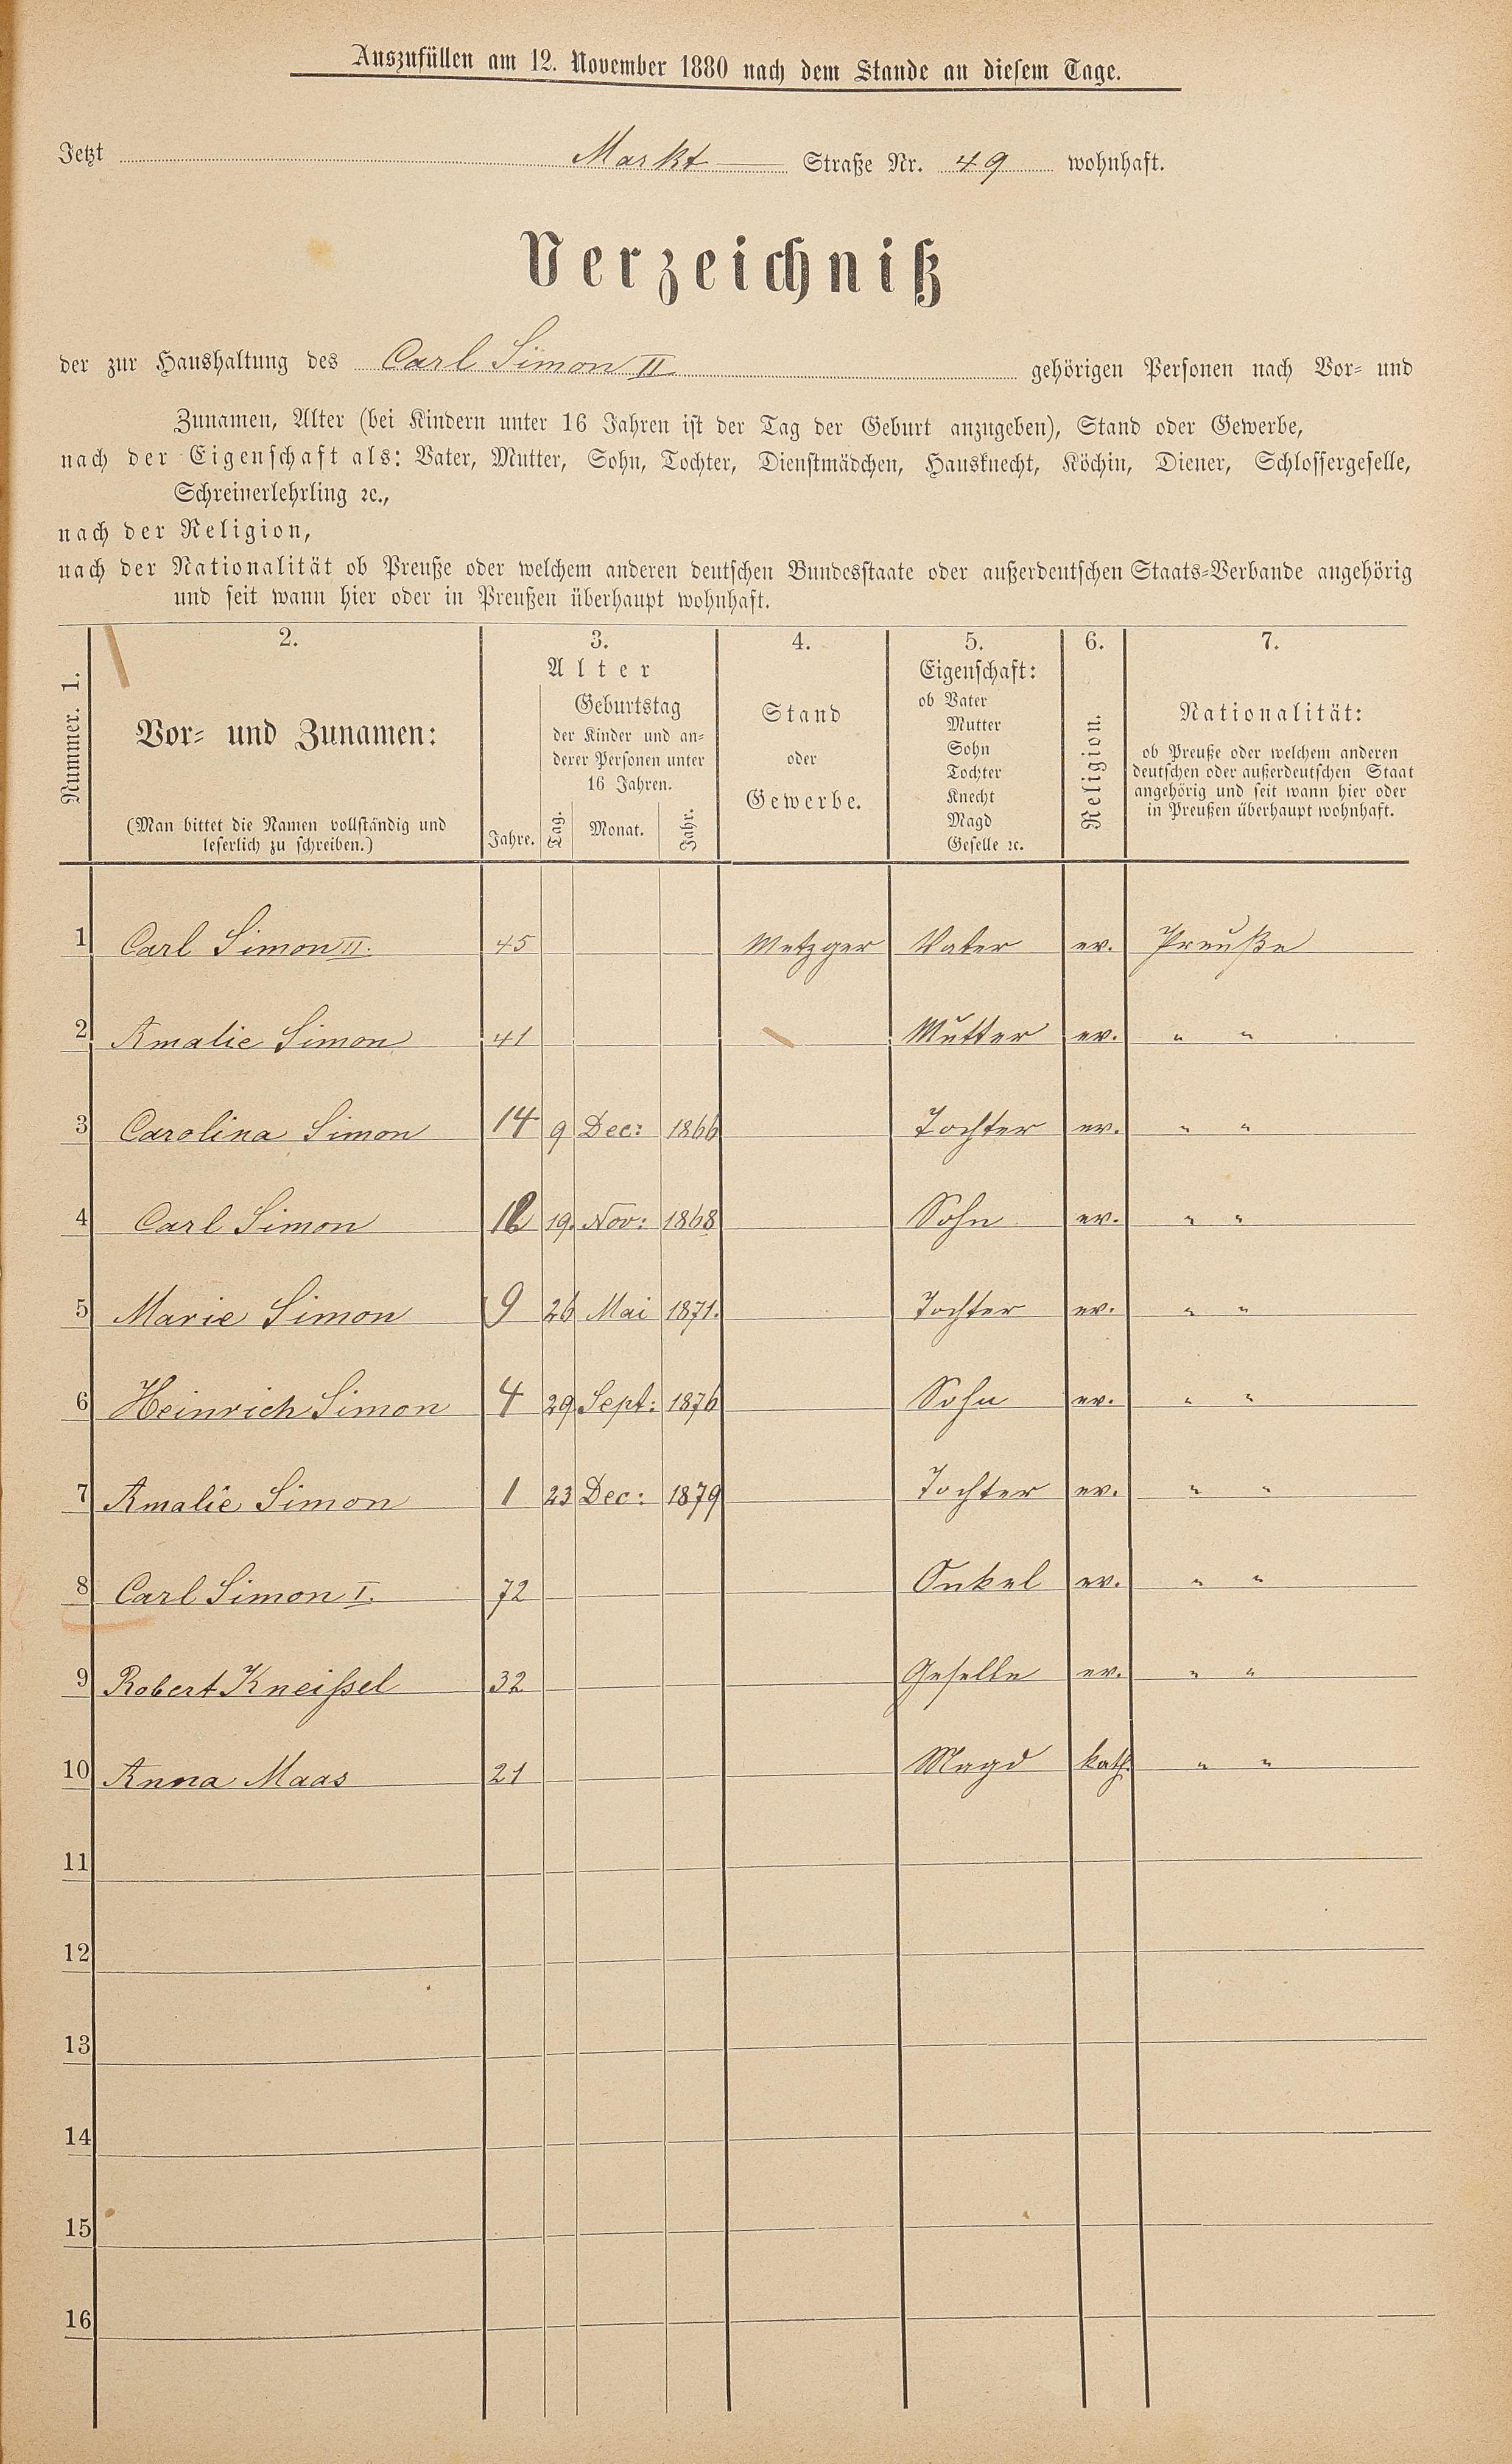 Auszufüllen am 12. November 1880 nach dem Stande an diesem Tage.
Jetzt Markt Straße Nr. 49 wohnhaft.
Verzeichniß
der zur Haushaltung des Carl Simon II gehörigen Personen nach Vor- und
Zunamen, Alter (bei Kindern unter 16 Jahren ist der Tag der Geburt anzugeben), Stand oder Gewerbe,
nach der Eigenschaft als: Vater, Mutter, Sohn, Tochter, Dienstmädchen, Hausknecht, Köchin, Diener, Schlossergeselle,
Schreinerlehrling ꝛc.,
nach der Religion,
nach der Nationalität ob Preuße oder welchem anderen deutschen Bundesstaate oder außerdeutschen Staats-Verbande angehörig
und seit wann hier oder in Preußen überhaupt wohnhaft.
Nummer. 1.
2.
Vor- und Zunamen:
(Man bittet die Namen vollständig und
leserlich zu schreiben.)
3.
Alter
Jahre.
Geburtstag
der Kinder und an-
derer Personen unter
16 Jahren.
Tag. Monat. Jahr.
4.
Stand
oder
Gewerbe.
5.
Eigenschaft:
ob Vater
Mutter
Sohn
Tochter
Knecht
Magd
Geselle ꝛc.
6.
Religion.
7.
Nationalität:
ob Preuße oder welchem anderen
deutschen oder außerdeutschen Staat
angehörig und seit wann hier oder
in Preußen überhaupt wohnhaft.
1 Carl Simon II. 45 Metzger Vater ev. Preuße
2 Amalie Simon 41 Mutter ev. " "
3 Carolina Simon 14 9 Dec: 1866 Tochter ev. " "
4 Carl Simon 12 19. Nov: 1868 Sohn ev. " "
5 Marie Simon 9 26 Mai 1871. Tochter ev. " "
6 Heinrich Simon 4 29 Sept: 1876 Sohn ev. " "
7 Amalie Simon 1 23 Dec: 1879 Tochter ev. " "
8 Carl Simon I. 72 Onkel ev. " "
9 Robert Kneißel 32 Geselle ev. " "
10 Anna Maas 21 Magd kath. " "
11
12
13
14
15
16